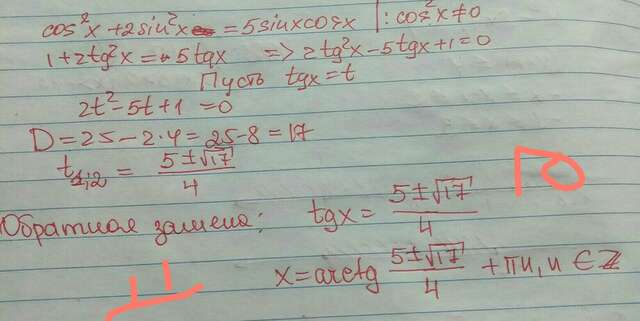 cos²x+2sin²x=5sinxcosx |:cos²x≠0
1+2tg²x=5tgx => 2tg²x-5tgx+1=0
Пусть tgx=t
2t²-5t+1=0
D=25-2·4=25-8=17
t₁,₂ = (5±√17)/4
Обратная замена: tgx= (5±√17)/4
x=arctg (5±√17)/4 +πn, n∈Z